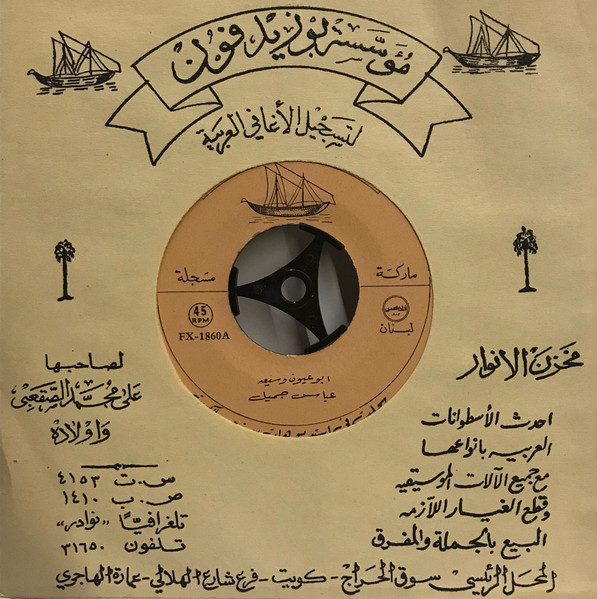 مؤسسة بوزيدفون
لتسجيل الأغاني العربية
ماركة
مسجلة
45
RPM
FX-1860A
لبنان
ابو عيون وسيعه
عباس جميل
مخزن الانوار
احدث الأسطوانات
العربيه بانواعها
مع جميع الآلات الموسيقيه
وقطع الغيار اللازمه
البيع بالجملة والمفرق
لصاحبها
علي محمد الصقعبي
واولاده
س.ت ٤١٥٣
ص.ب ١٤١٠
تلغرافياً "نوادر"
تلفون ٣١٦٥٠
المحل الرئيسي سوق الحراج - كويت - فرع شارع الهلالي - عمارة الهاجري